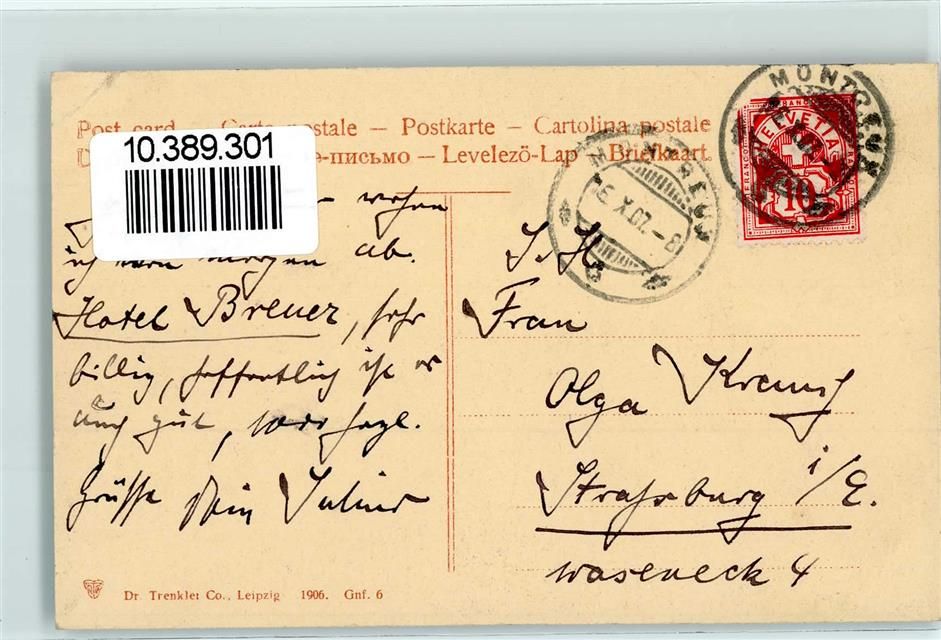 Post card – Carte postale – Postkarte – Cartolina postale
-письмо – Levelező-Lap – Briefkaart
10.389.301
ich morgen ab.
Hotel Breuer, sehr
billig, hoffentlich ist es
auch gut, herzl.
Grüsse Dein Julius
MONTREUX
MONTREUX
16.X.07.-8
FRANCO
HELVETIA
10
S. H.
Frau
Olga
Strassburg i/E.
Waseneck 4
Dr. Trenkler Co., Leipzig 1906. Gnf. 6